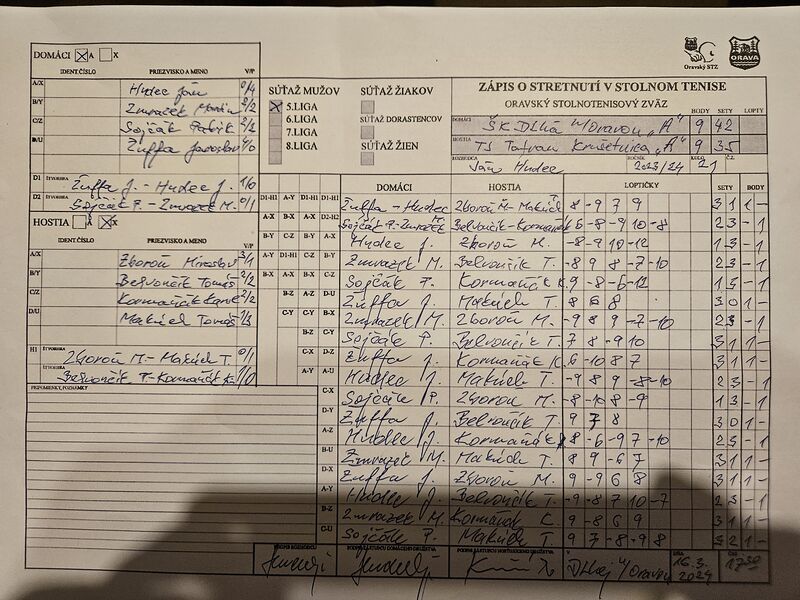 DOMÁCI A X
IDENT.ČÍSLO PRIEZVISKO A MENO V/P
A/X Hudec Ján 0/4
B/Y Zmrazek Martin 2/2
C/Z Sojčák Patrik 2/2
D/U Žuffa Jaroslav 4/0
D1 ŠTVORHRA Žuffa J. - Hudec J. 1/0
D2 ŠTVORHRA Sojčák P. - Zmrazek M. 0/1
HOSTIA A X
IDENT.ČÍSLO PRIEZVISKO A MENO V/P
A/X Zboroň Miroslav 3/1
B/Y Belvončík Tomáš 2/2
C/Z Kormančík Karol 2/2
D/U Makúch Tomáš 1/3
H1 ŠTVORHRA Zboroň M. - Makúch T. 0/1
ŠTVORHRA Belvončík T. - Kormančík K. 1/0
PRIPOMIENKY, POZNÁMKY
SÚŤAŽ MUŽOV
5.LIGA
6.LIGA
7.LIGA
8.LIGA
SÚŤAŽ ŽIAKOV
SÚŤAŽ DORASTENCOV
SÚŤAŽ ŽIEN
Oravský STZ
ORAVA
ZÁPIS O STRETNUTÍ V STOLNOM TENISE
ORAVSKÝ STOLNOTENISOVÝ ZVÄZ
BODY SETY LOPTY
DOMÁCI ŠK Dlhá n/Oravou "A" 9 42
HOSTIA TJ Tatran Krušetnica "A" 9 35
ROZHODCA Ján Hudec ROČNÍK 2023/24 KOLO 21 Č.Z.
DOMÁCI HOSTIA LOPTIČKY SETY BODY
D1-H1 A-Y D1-H1 D1-H1 Žuffa - Hudec Zboroň M. - Makúch 8 -9 7 9 3 1 1 -
A-X B-X A-X D2-H2 Sojčák P. - Zmrazek M. Belvončík - Kormančík 6 -8 -9 10 -8 2 3 - 1
B-Y C-Z B-Y A-X Hudec J. Zboroň M. -8 9 10 -12 1 3 - 1
A-Y D1-H1 C-Z B-Y Zmrazek M. Belvončík T. -8 9 8 -7 -10 2 3 - 1
B-X A-X B-X C-Z Sojčák P. Kormančík K. 9 -8 -6 -12 1 3 - 1
B-Z A-Z D-U Žuffa J. Makúch T. 8 6 8 3 0 1 -
C-Y C-Y B-X Zmrazek M. Zboroň M. -9 8 9 -7 -10 2 3 - 1
B-Z C-Y Sojčák P. Belvončík T. 7 8 -9 10 3 1 1 -
C-X D-Z Žuffa J. Kormančík K. 6 -10 8 7 3 1 1 -
A-Y A-U Hudec J. Makúch T. -9 8 9 -8 -10 2 3 - 1
C-X Sojčák P. Zboroň M. -8 -10 8 -9 1 3 - 1
D-Y Žuffa J. Belvončík T. 9 7 8 3 0 1 -
A-Z Hudec J. Kormančík K. 8 -6 -9 7 -10 2 3 - 1
B-U Zmrazek M. Makúch T. 8 9 -6 7 3 1 1 -
D-X Žuffa J. Zboroň M. 9 -9 6 8 3 1 1 -
A-Y Hudec J. Belvončík T. -9 -8 7 10 -7 2 3 - 1
B-Z Zmrazek M. Kormančík K. 9 -8 6 9 3 1 1 -
C-U Sojčák P. Makúch T. 9 7 -8 -9 8 3 2 1 -
PODPIS ROZHODCU PODPIS ZÁSTUPCU DOMÁCEHO DRUŽSTVA PODPIS ZÁSTUPCU HOSŤUJÚCEHO DRUŽSTVA V Dlhej n/Oravou DŇA 16.3. 2024 ČAS 17:30